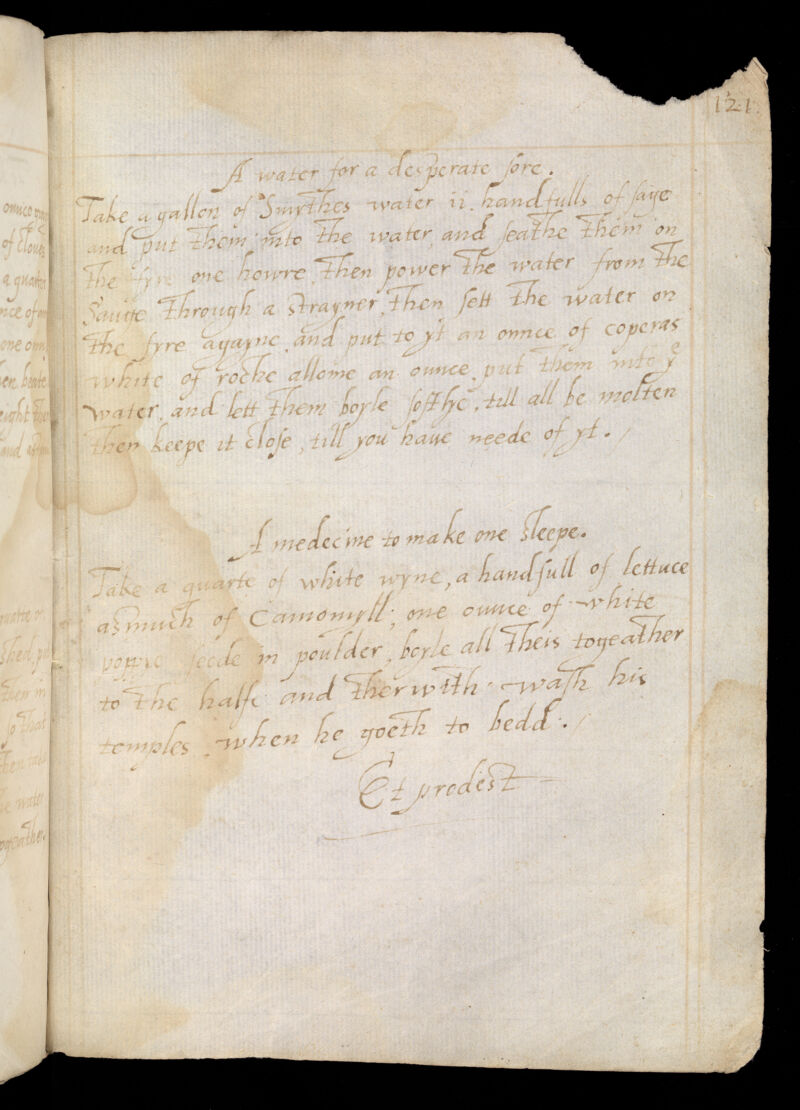 121
A water for a desperate sore.
Take a gallon of Smythes water ii handfulls of sage
and put them into the water, and seathe them on
the fyre one howre, then power the water from the
Sauge through a strayner, then sett the water on
the fyre agayne, and put to yt an ounce of coperas
white of roche allome an ounce, put them into ye
water, and lett them boyle softlye, till all be molten
then keepe it close, till you haue neede of yt.
A medecine to make one sleepe.
Take a quarte of white wyne, a handfull of lettuce
asmuch of Camomyll, one ounce of white
poppie seede in poulder, boyle all theis togeather
to the halfe and therwth wash his
temples, when he goeth to bedd.
Et prodest
of cloues
a quarter
then in
so that
the water
ogeather.